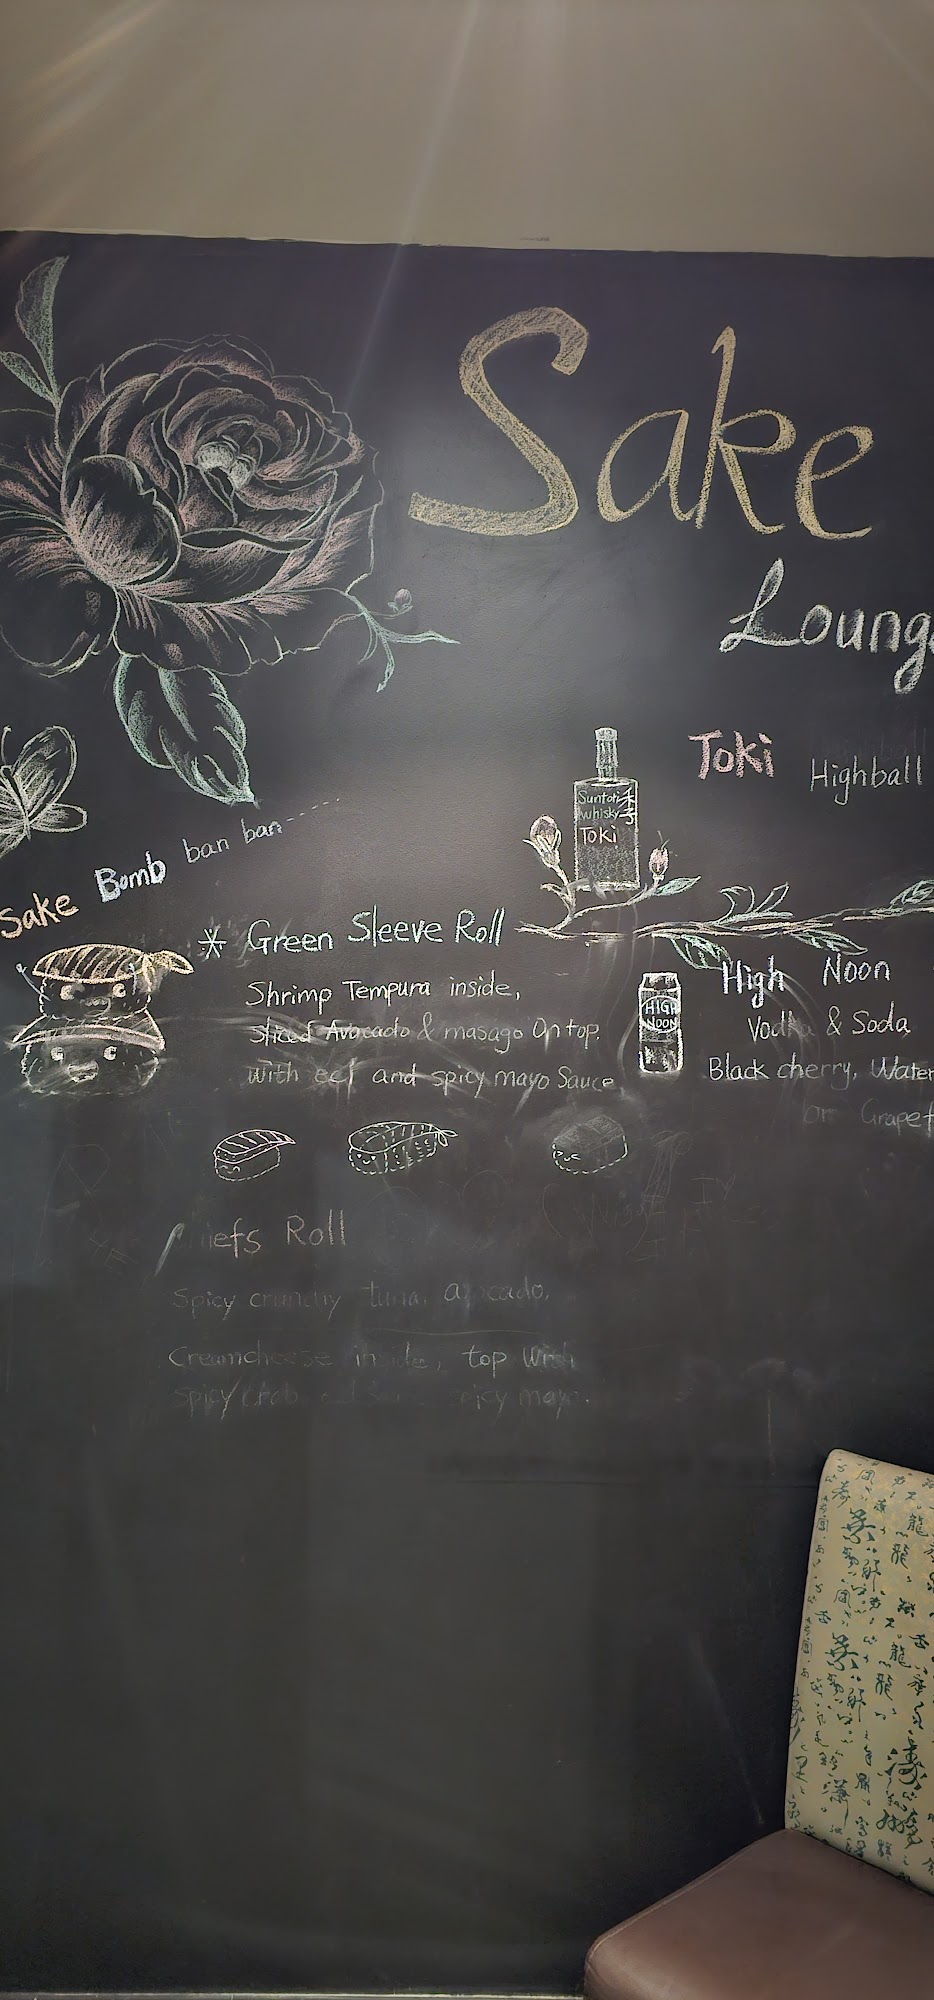 Sake
Loung
Toki
Highball
Suntori
Whisky
Toki
Sake Bomb ban ban
* Green Sleeve Roll
Shrimp Tempura inside,
sliced Avocado & masago On top.
with eel and spicy mayo Sauce
High Noon
HIGH
NOON
Vodka & Soda
Black cherry, Water
or Grapef
iefs Roll
Spicy crunchy tuna, avocado,
Creamcheese inside, top with
spicy crab spicy mayo.